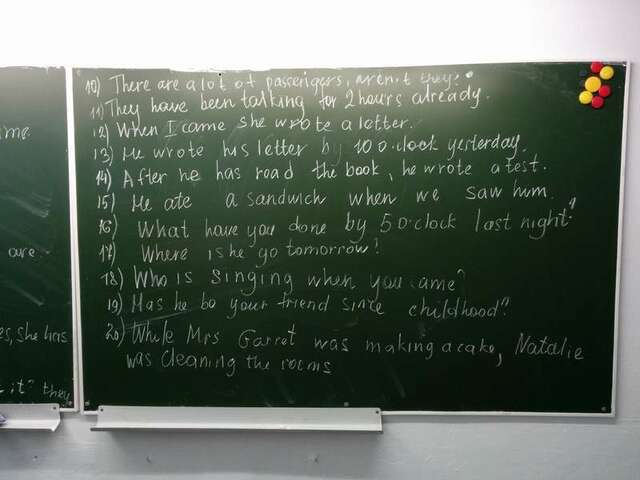 ime
are
es, she has
it? they
10) There are a lot of passengers, aren't they?
11) They have been talking for 2 hours already.
12) When I came she wrote a letter.
13) He wrote his letter by 10 o.clock yesterday.
14) After he has road the book, he wrote a test.
15) He ate a sandwich when we saw him.
16) What have you done by 5 o.clock last night?
17) Where is he go tomorrow?
18) Who is singing when you came?
19) Has he be your friend since childhood?
20) While Mrs Garret was making a cake, Natalie
was cleaning the rooms